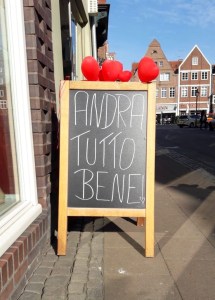 ANDRA
TUTTO
BENE!